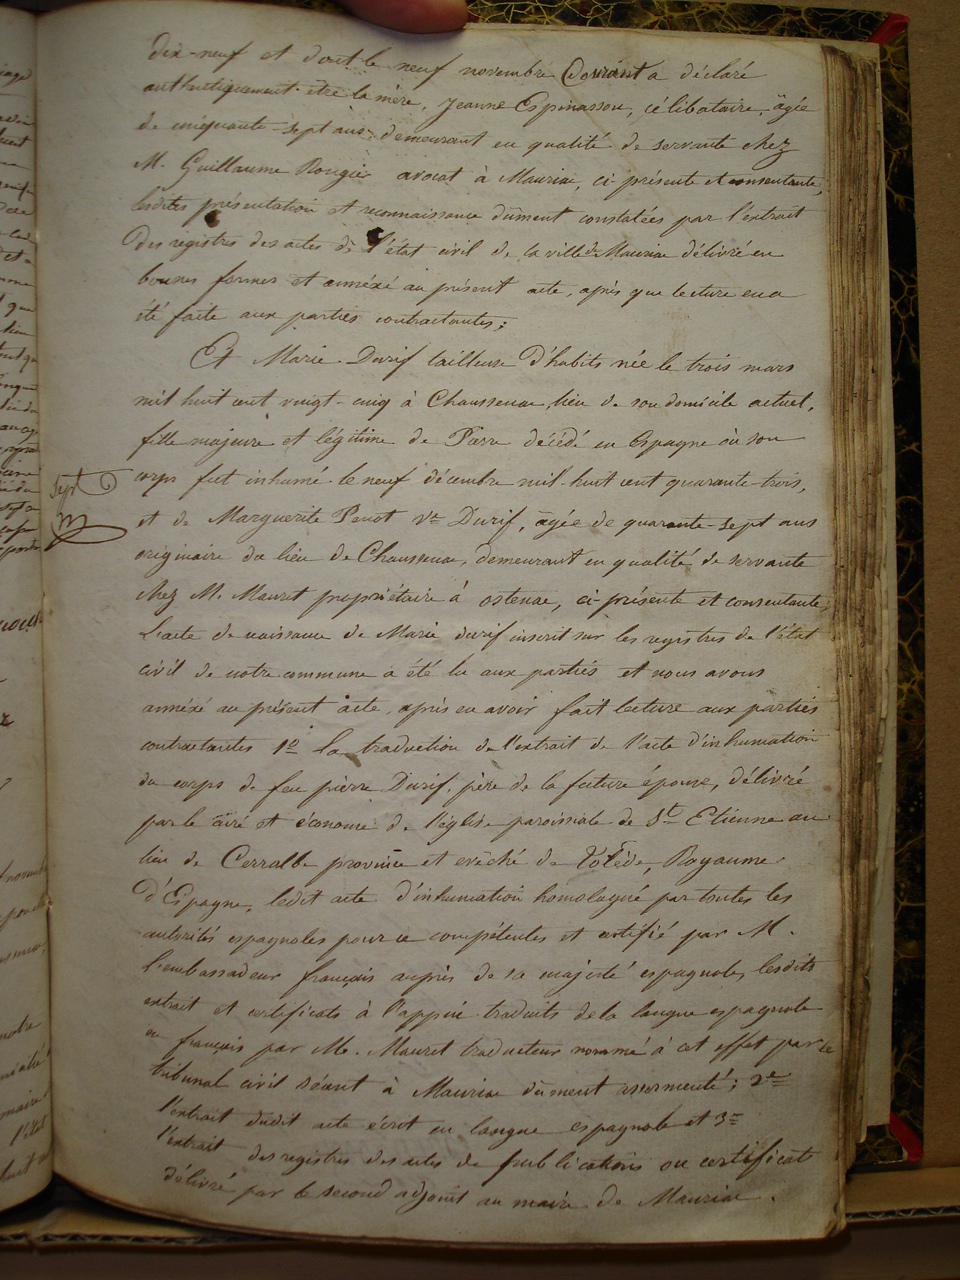 dix-neuf et dont le neuf novembre Courant a déclaré
authentiquement être la mère, Jeanne Espinassou, célibataire, âgée
de cinquante-sept ans, demeurant en qualité de servante chez
M. Guillaume Rougier avocat à Mauriac, ci-présente et consentante,
lesdites présentation et reconnaissance dûment constatées par l'extrait
des registres des actes de l'état civil de la ville de Mauriac délivré en
bonnes formes et annéxé au présent acte, après que lecture en a
été faite aux parties contractantes;
Et Marie Durif tailleuse d'habits née le trois mars
mil huit cent vingt-cinq à Chaussenac, lieu de son domicile actuel,
fille majeure et légitime de Pierre décédé en Espagne où son
corps fut inhumé le neuf décembre mil-huit cent quarante-trois,
Sept
et de Marguerite Penot Ve Durif, âgée de quarante-sept ans
originaire du lieu de Chaussenac, demeurant en qualité de servante
chez M. Mauret propriétaire à ostenac, ci-présente et consentante;
L'acte de naissance de Marie durif inscrit sur les registres de l'état
civil de notre commune a été lu aux parties et nous avons
annéxé au présent acte, après en avoir fait lecture aux parties
contractantes 1º la traduction de l'extrait de l'acte d'inhumation
du corps de feu pierre Durif, père de la future épouse, délivré
par le curé et économe de l'église paroissiale de St Etienne au
lieu de Cerralbe province et évêché de Tolède, Royaume
d'Espagne, ledit acte d'inhumation homologué par toutes les
autorités espagnoles pour ce compétentes et certifié par M.
l'embassadeur français auprès de sa majesté espagnole, lesdits
extrait et certificats à l'appui traduits de la langue espagnole
en français par M. Mauret traducteur nommé à cet effet par le
tribunal civil séant à Mauriac dûment assermenté; 2e
l'extrait dudit acte écrit en langue espagnole et 3e
l'extrait des registres des actes de publications ou certificat
délivré par le second adjoint au maire de Mauriac.